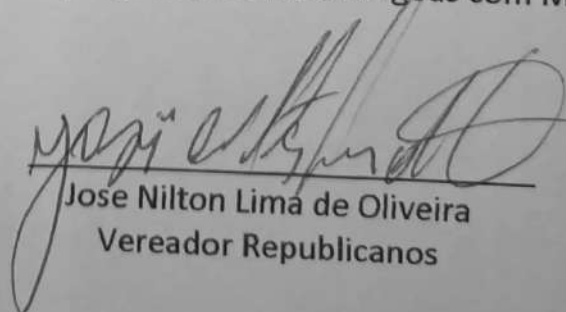 com
Jose Nilton Lima de Oliveira
Vereador Republicanos